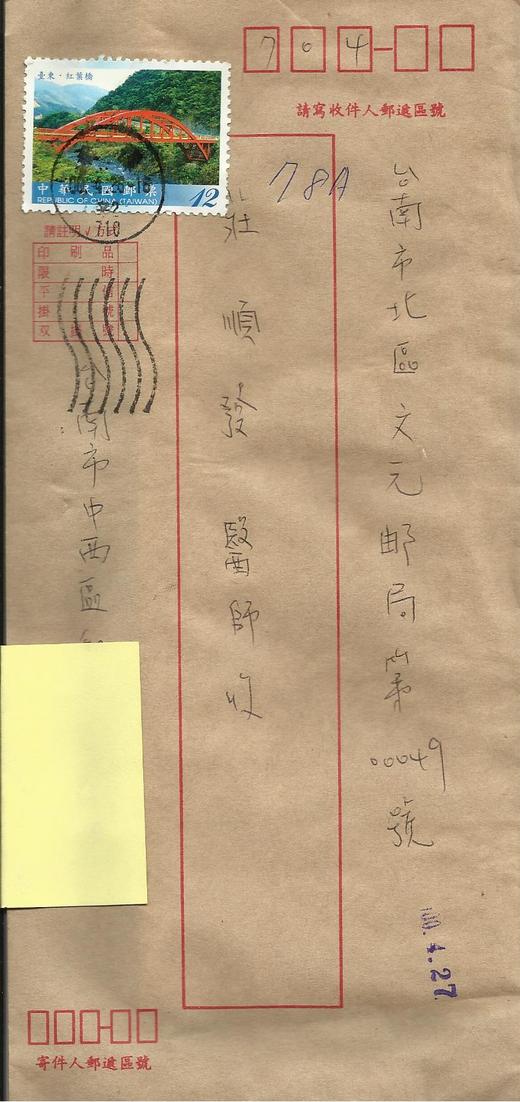 704
請寫收件人郵遞區號
臺東·紅葉橋
中華民國郵票
REPUBLIC OF CHINA (TAIWAN)
12
710
78A
台南市北區文元邮局第00049號
莊順發 醫師收
請註明√方式
印刷品
限時
平信
掛號
双掛號
台南市中西區
100.4.27
寄件人郵遞區號